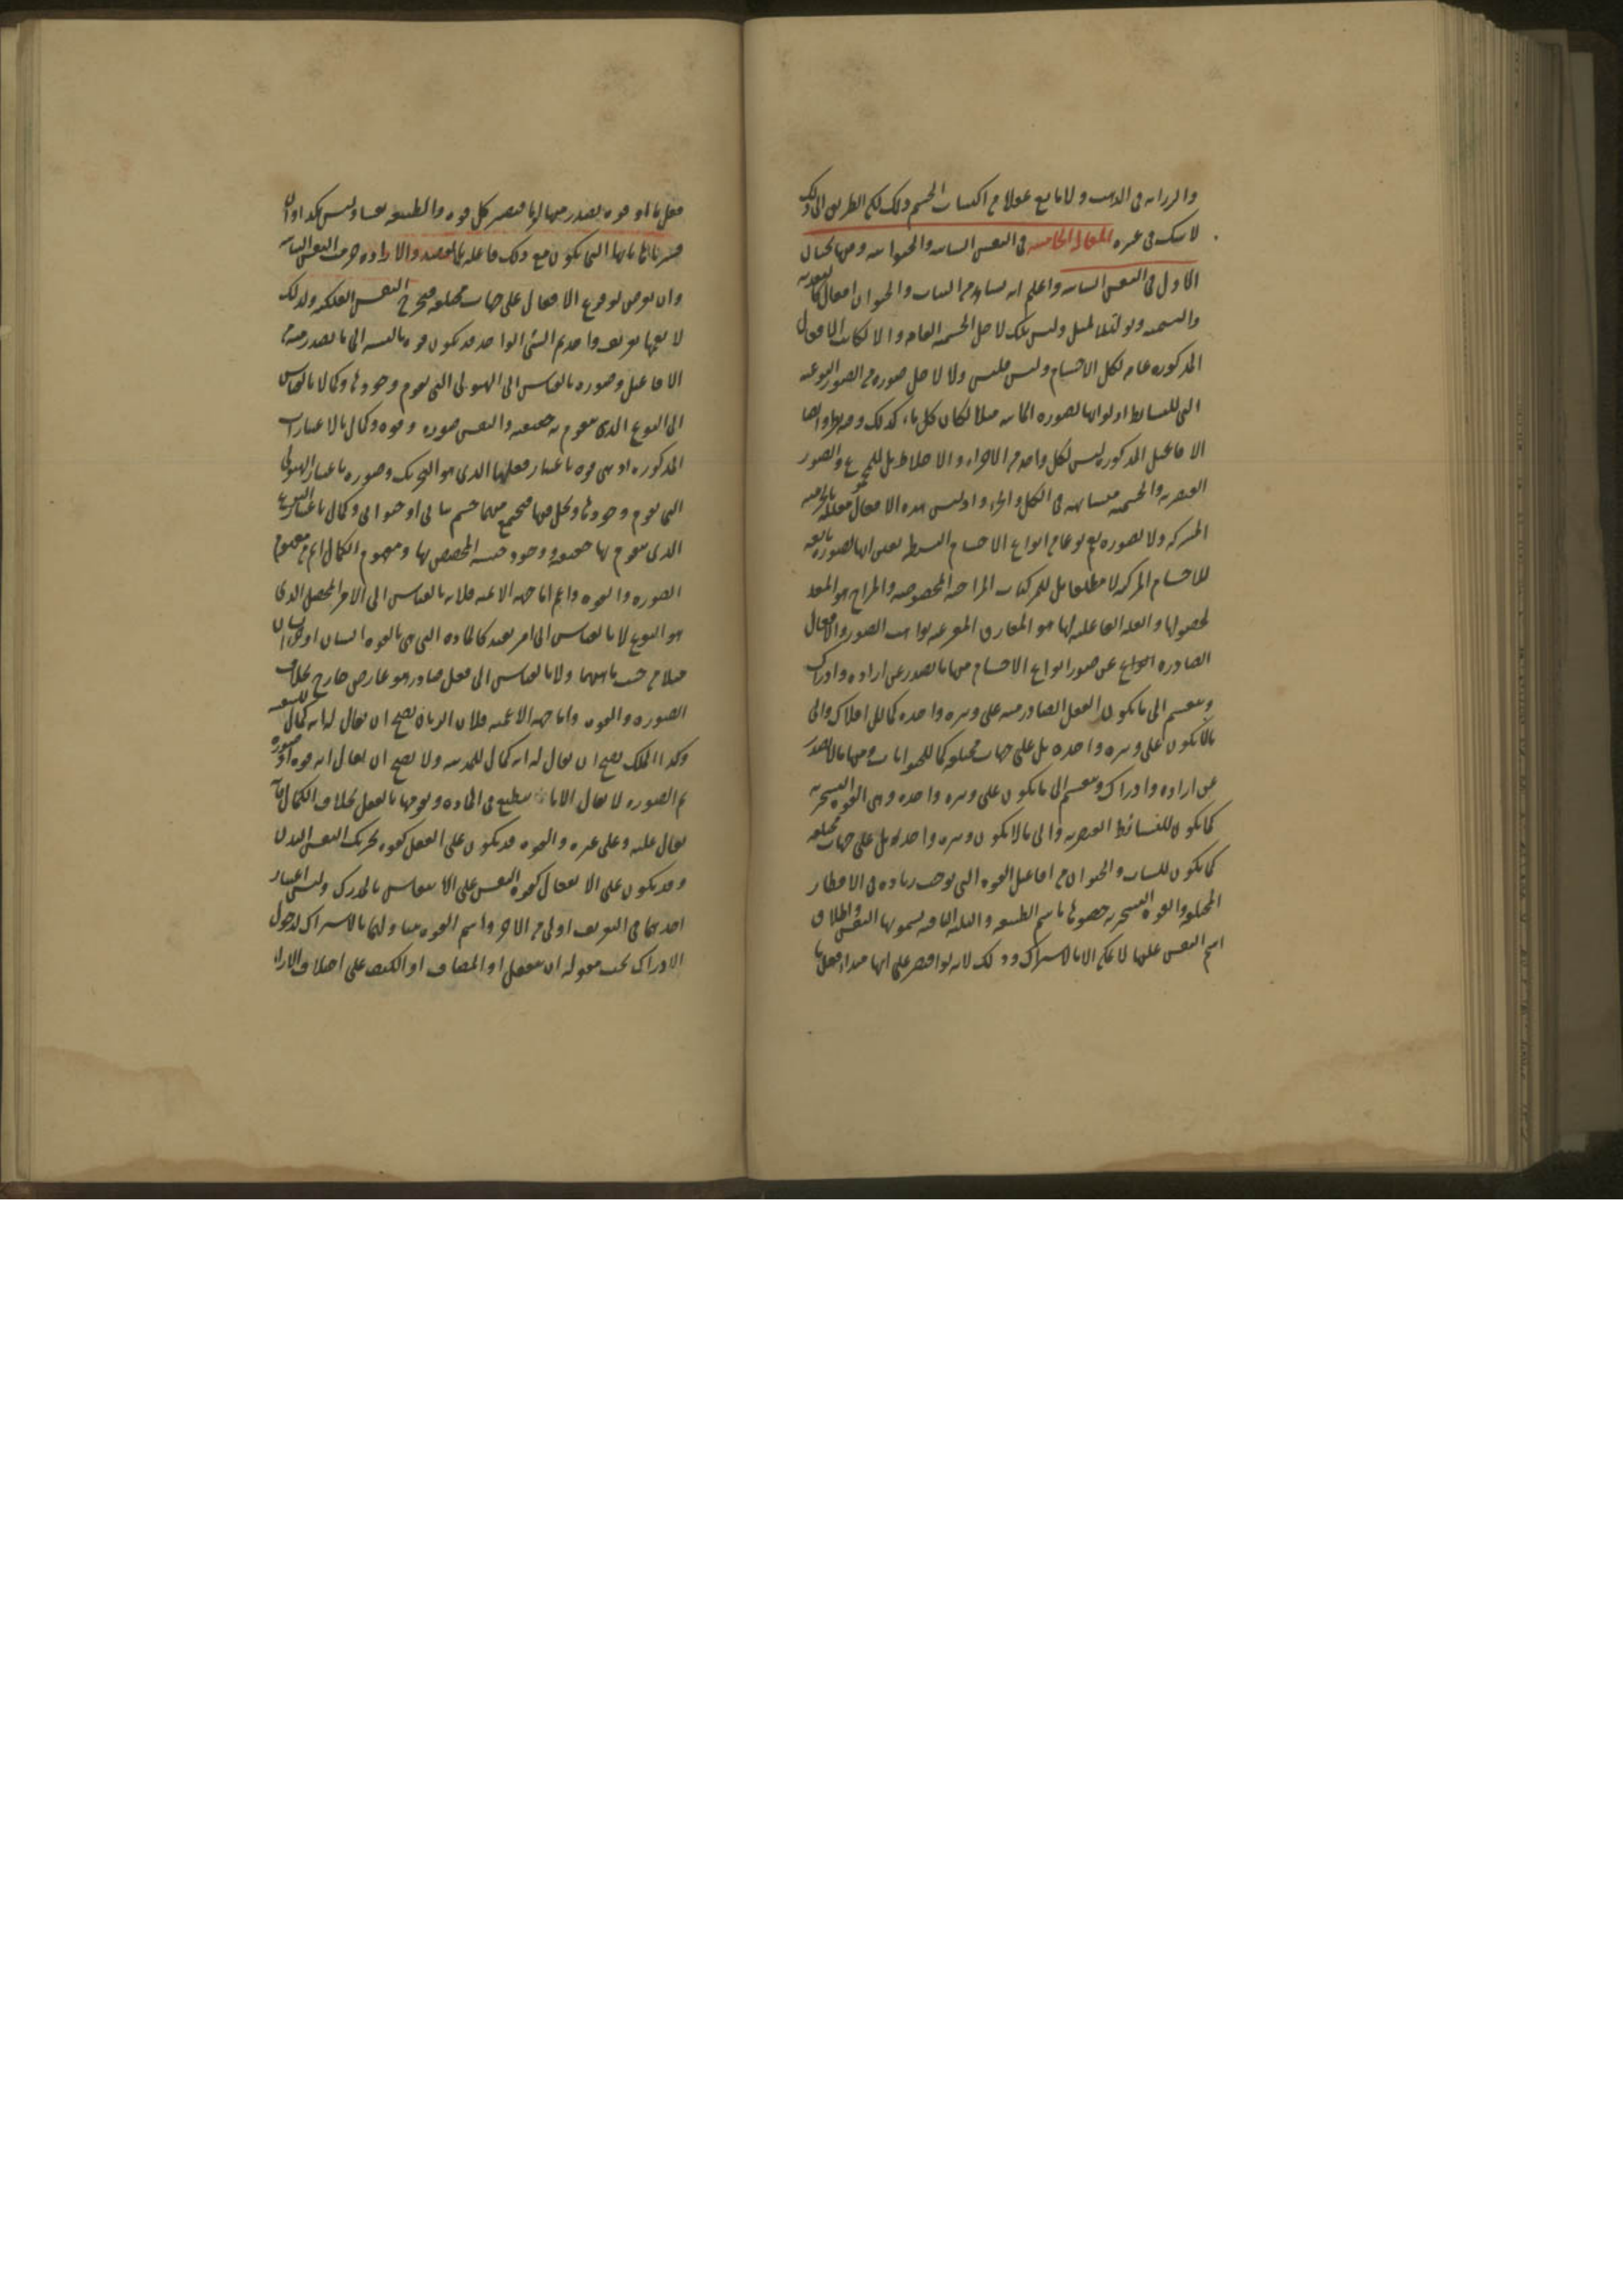 والرزانه في الذهب ولا مانع عقلا من اكتساب الجسم ذلك لكن الطريق الى ذلك
لا سك في عسره المقاله الخامسه في النفس النباتيه والحيوانيه وفيها بحثان
الاول في النفس النباتيه واعلم انه يصدر من النبات والحيوان افعال كالتغذيه
والتنميه وتوليد المثل وليس ذلك لاجل الجسميه العامه والا لكانت الافعال
المذكوره عامه لكل الاجسام وليس فليس ولا لاجل صوره من الصور النوعيه
التي للبسايط اذ لو انها لصوره المائيه مثلا لكان كل ماء كذلك
الافاعيل المذكوره ليس لكل واحد من الاجزاء والاخلاط بل للمجموع والصور
العنصريه والجسميه متشابهه في الكل والجزء واذ ليس هذه الافعال معلله بالجسميه
المشتركه ولا بصوره نوع من انواع الاجسام البسيطه تعين انها لصوره تابعه
للاجسام المركبه لا مطلقا بل للمركبات المزاجيه المخصوصه والمزاج هو المعد
لحصولها والعله الفاعليه لها هو المفارق المعبر عنه بواهب الصور والافعال
الصادره عن صور انواع الاجسام منها ما يصدر عن اراده وادراك
وينقسم الى ما يكون الفعل الصادر منه على وتيره واحده كما للافلاك والى
ما لا يكون على وتيره واحده بل على جهات مختلفه كما للحيوانات ومنها ما لا يصدر
عن اراده وادراك وينقسم الى ما يكون على وتيره واحده وهي القوه التسخيريه
كما يكون للبسائط العنصريه والى ما لا يكون وتيره واحده بل على جهات مختلفه
كما يكون للنبات والحيوان من افاعيل القوه التي توجب زياده في الاقطار
المختلفه والقوه التسخيريه خصوها باسم الطبيعه والثلثه الباقيه يسمونها النفس واطلاق
اسم النفس عليها لا يمكن الا بالاشتراك وذلك لانه لو اقتصر على انها مبدا فعل ما
فعل ما او قوه يصدر عنها امر ما فيصير كل قوه والطبيعه نفسا وليس كذا وان
فسرناها بانها التي تكون مع ذلك فاعله بالقصد والاراده خرجت النفس النباتيه
وان يعرض لوقوع الافعال على جهات مختلفه فيخرج النفس الفلكيه ولذلك
لا يعمها تعريف واحد ثم الشئ الواحد قد يكون قوه بالنسبه الى ما يصدر منه من
الافاعيل وصوره بالقياس الى الهيولى التي يقوم وجودها وكمالا بالقياس
الى النوع الذي يتقوم به حقيقته والنفس صوره وقوه وكمال بالاعتبارات
المذكوره اذ هي قوه باعتبار فعلها الذي هو التحريك وصوره باعتبار الهيولى
التي يقوم وجودها ويحل فيها فيجتمع منهما جسم نباتي او حيواني وكمال باعتبار النوع
الذي يتقوم بها حقيقته ووجود جنسه المخصص بها ومفهوم الكمال اعم من مفهوم
الصوره والقوه واتم اما جهه الاتميه فلانه بالقياس الى الامر المحصل الذي
هو النوع لا بالقياس الى امر بعيد كالماده التي هي بالقوه انسان او نبات
ولا بالقياس الى فعل صادر هو عارض خارج بخلاف
الصوره والقوه واما جهه الاعميه فلان الربان يصح ان يقال له انه كمال للسفينه
وكذا الملك يصح ان يقال له انه كمال للمدينه ولا يصح ان يقال انه قوه او صوره
ثم الصوره لا يقال الا لما ينطبع في الماده ويوجدها بالفعل بخلاف الكمال فانه
يقال عليه وعلى غيره والقوه قد يكون على الفعل كقوه تحريك النفس البدن
وقد يكون على الانفعال كقوه النفس على الانتقاش بالمدرك وليس اعتبار
احديهما في التعريف اولى من الاخر واسم القوه يتناولهما بالاشتراك لدخول
الادراك تحت مقوله ان ينفعل او المضاف او الكيف على اختلاف الاراء